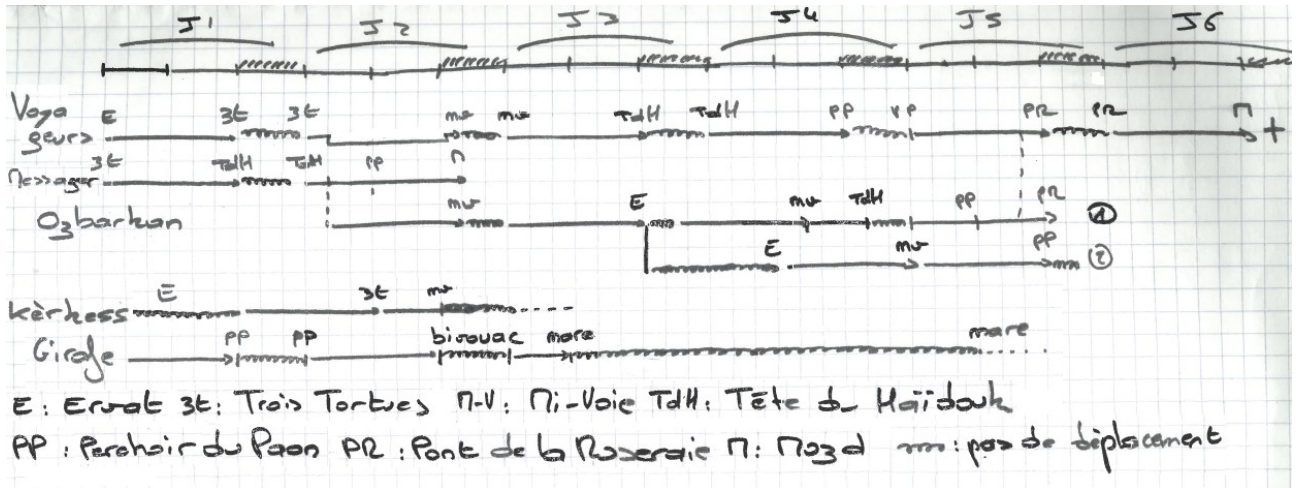 J1 J2 J3 J4 J5 J6
Voya E 3t 3t mv mv TdH TdH PP PP PR PR M +
geurs
Messager 3t TdH TdH PP M
Ozbarkan mv E mv TdH PP PR ①
E mv PP ②
kèrkess E 3t mv
Girafe PP PP bivouac mare mare
E : Ervat 3t : Trois Tortues M-V : Mi-Voie TdH : Tête du Haïdouk
PP : Perchoir du Paon PR : Pont de la Roseraie M : Mozd : pas de déplacement